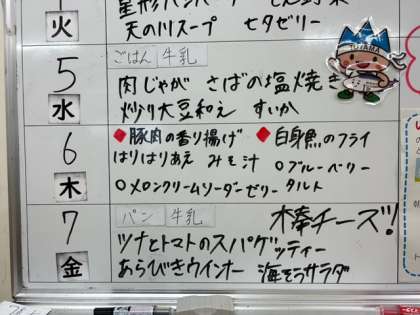 火
天の川スープ 七夕ゼリー
TOYAMA
5
水
ごはん 牛乳
肉じゃが さばの塩焼き
炒り大豆和え すいか
6
木
◆豚肉の香り揚げ ◆白身魚のフライ
はりはりあえ みそ汁 ○ブルーベリー
○メロンクリームソーダーゼリー タルト
7
金
パン 牛乳 棒チーズ!
ツナとトマトのスパゲッティー
あらびきウインナー 海そうサラダ